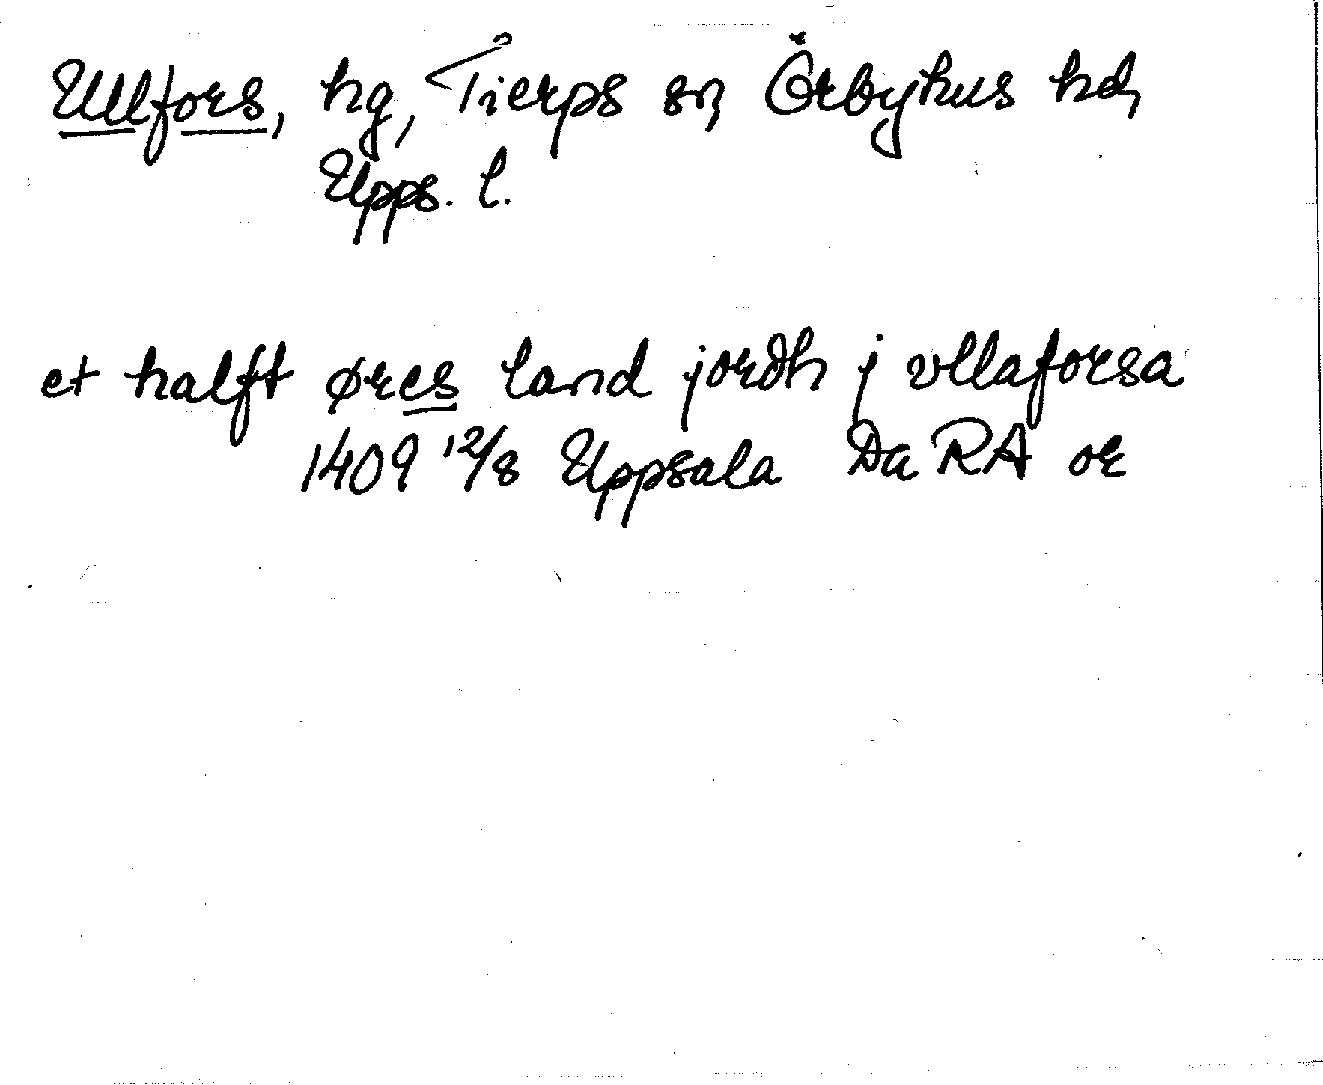 Ullfors, hg, Tierps sn Örbyhus hd,
Upps. l.
et halft øres land jordh j vllaforsa
1409 12/8 Uppsala Da RA or